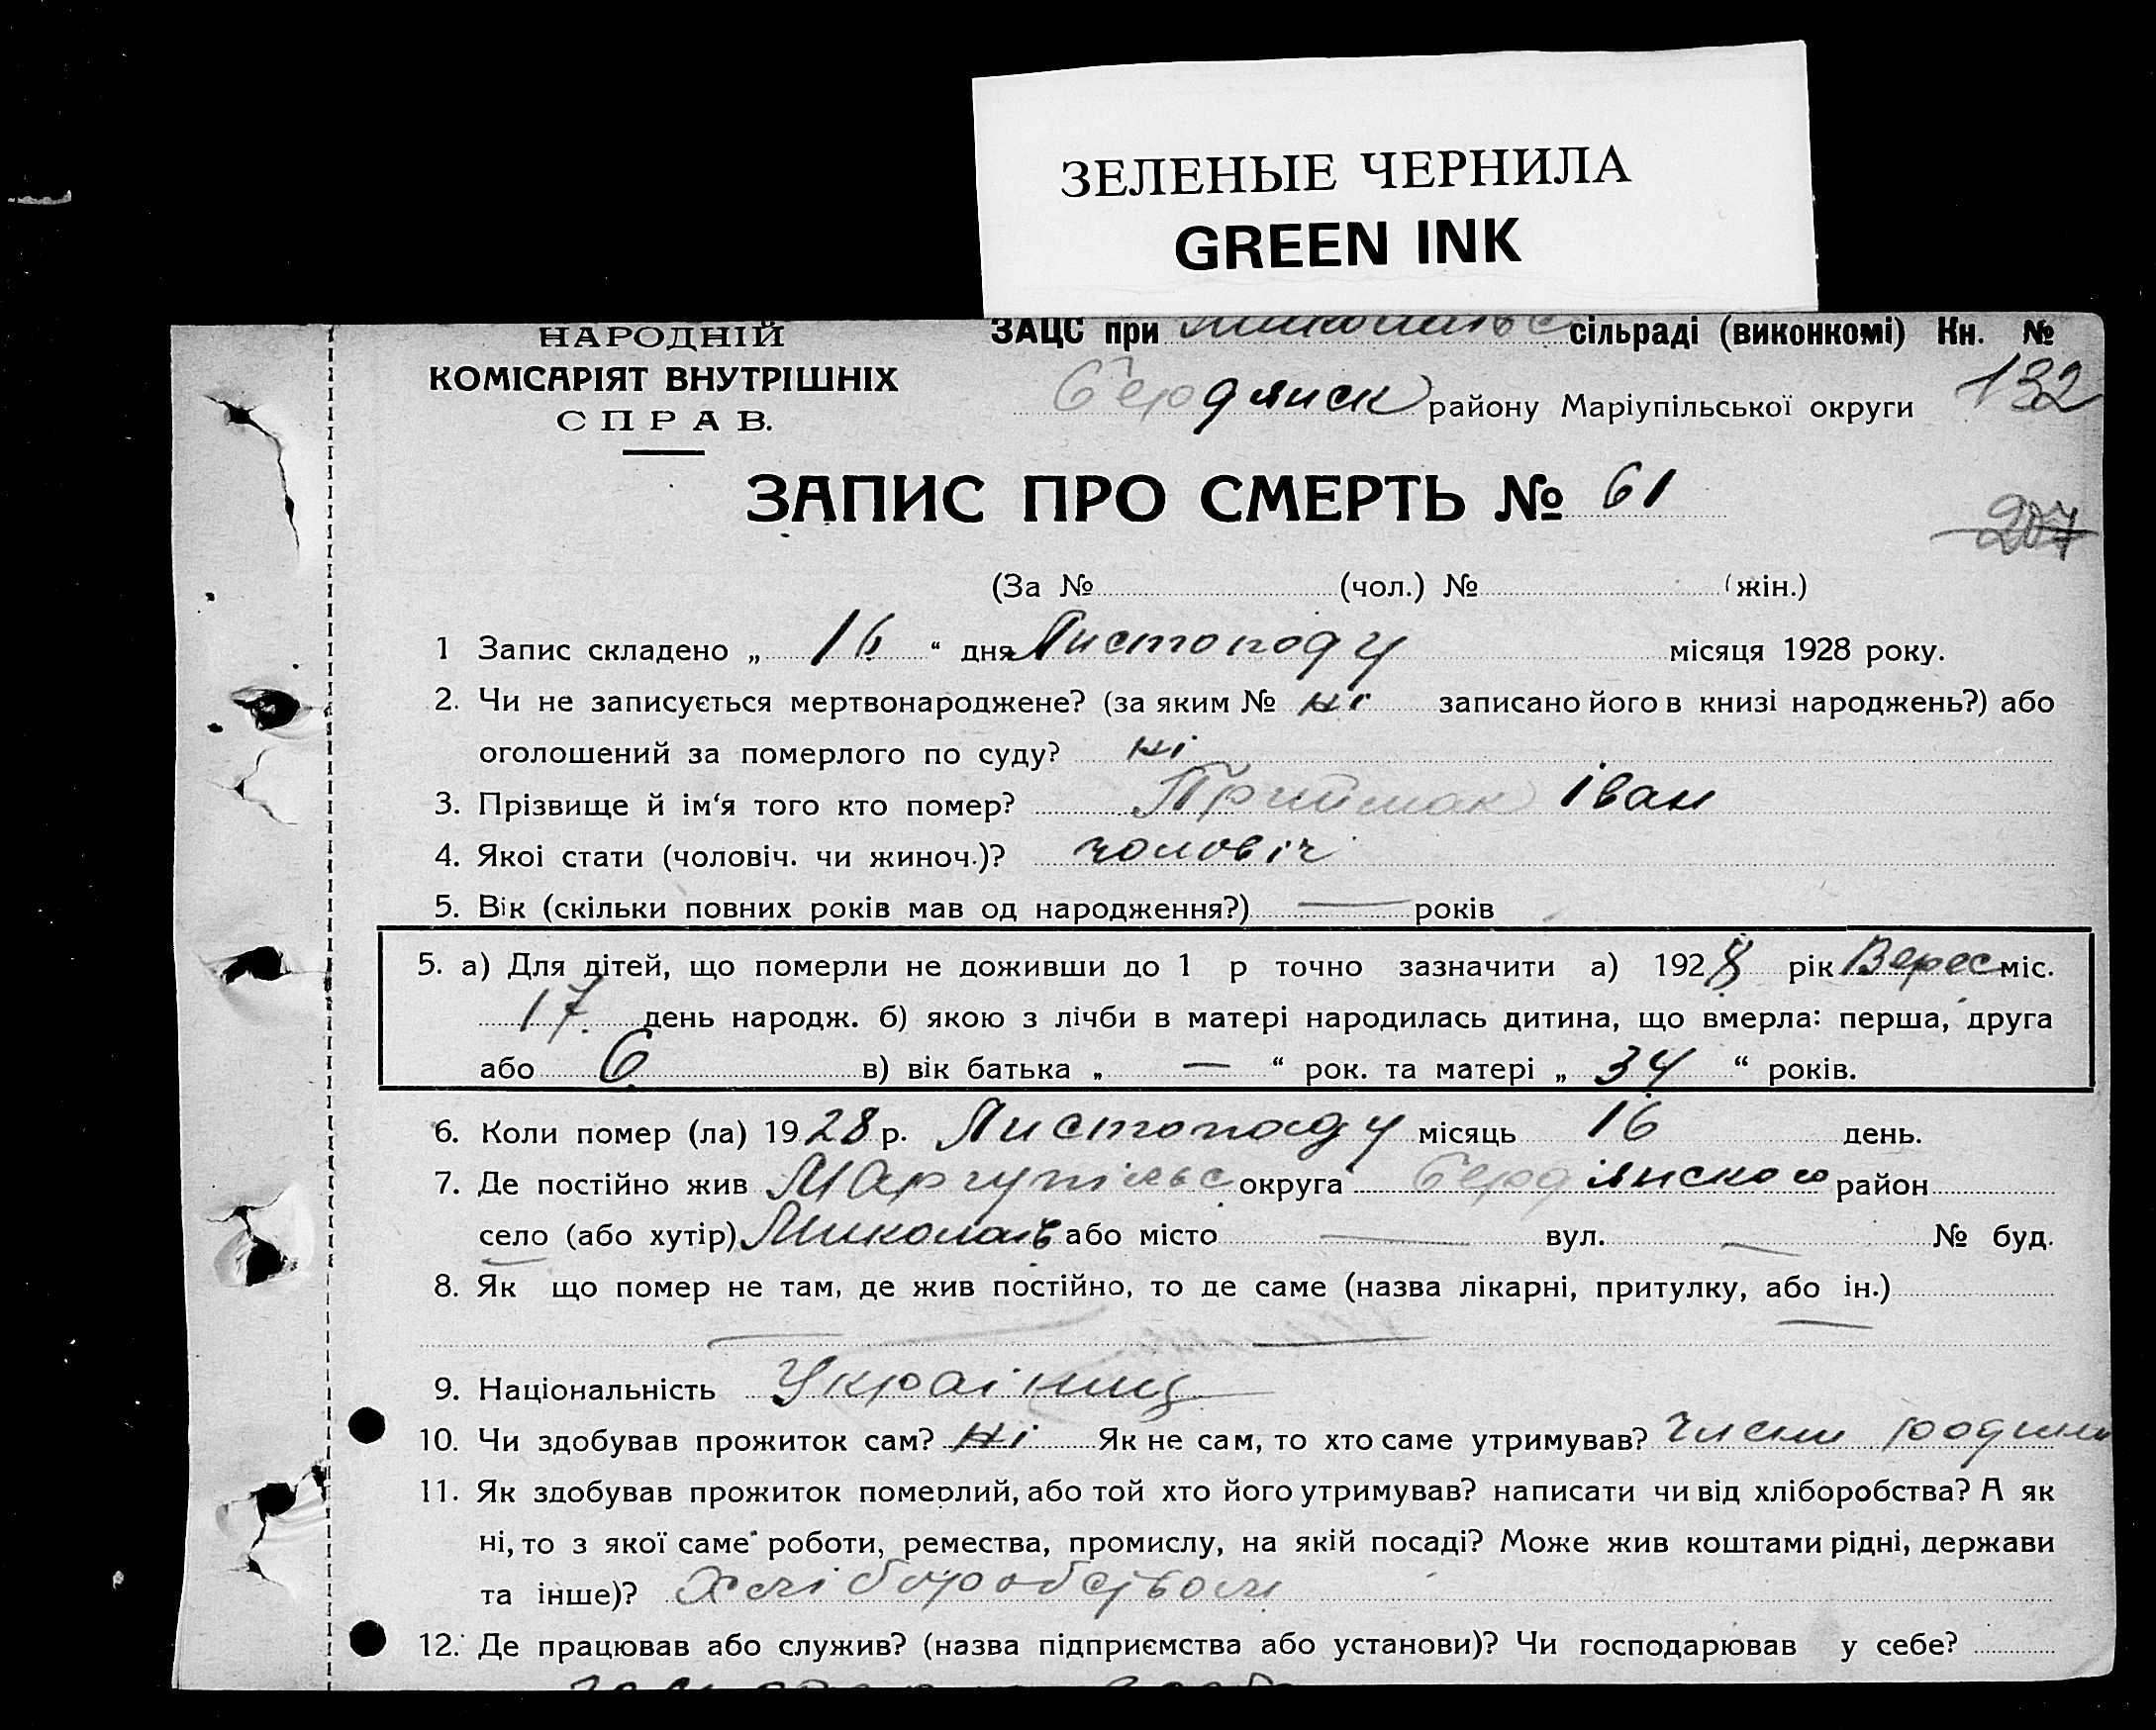 ЗЕЛЕНЫЕ ЧЕРНИЛА
GREEN INK
НАРОДНІЙ
КОМІСАРІЯТ ВНУТРІШНІХ
СПРАВ.
ЗАЦС при Миколаївс сільраді (виконкомі) Кн. №
Бердянск району Маріупільської округи 132
ЗАПИС ПРО СМЕРТЬ № 61
207
(За № (чол.) № (жін.)
1 Запис складено „ 16 “ дня Листопаду місяця 1928 року.
2. Чи не записується мертвонароджене? (за яким № ні записано його в книзі народжень?) або
оголошений за померлого по суду? ні
3. Прізвище й ім‘я того кто помер? Приймак Іван
4. Якоі стати (чоловіч. чи жиноч.)? чоловіч
5. Вік (скільки повних років мав од народження?) — років
5. а) Для дітей, що померли не доживши до 1 р точно зазначити а) 1928 рік Верес міс.
17 день народж. б) якою з лічби в матері народилась дитина, що вмерла: перша, друга
або 6 в) вік батька „ — “ рок. та матері „ 34 “ років.
6. Коли помер (ла) 1928 р. Листопаду місяць 16 день.
7. Де постійно жив Маріупільс округа Бердянского район
село (або хутір) Миколаїв або місто — вул. — № буд.
8. Як що помер не там, де жив постійно, то де саме (назва лікарні, притулку, або ін.)
9. Національність Украінец
10. Чи здобував прожиток сам? Ні Як не сам, то хто саме утримував? Члени родини
11. Як здобував прожиток померлий, або той хто його утримував? написати чи від хліборобства? А як
ні, то з якої саме роботи, ремества, промислу, на якій посаді? Може жив коштами рідні, держави
та інше)? Хліборобством
12. Де працював або служив? (назва підприємства або установи)? Чи господарював у себе?